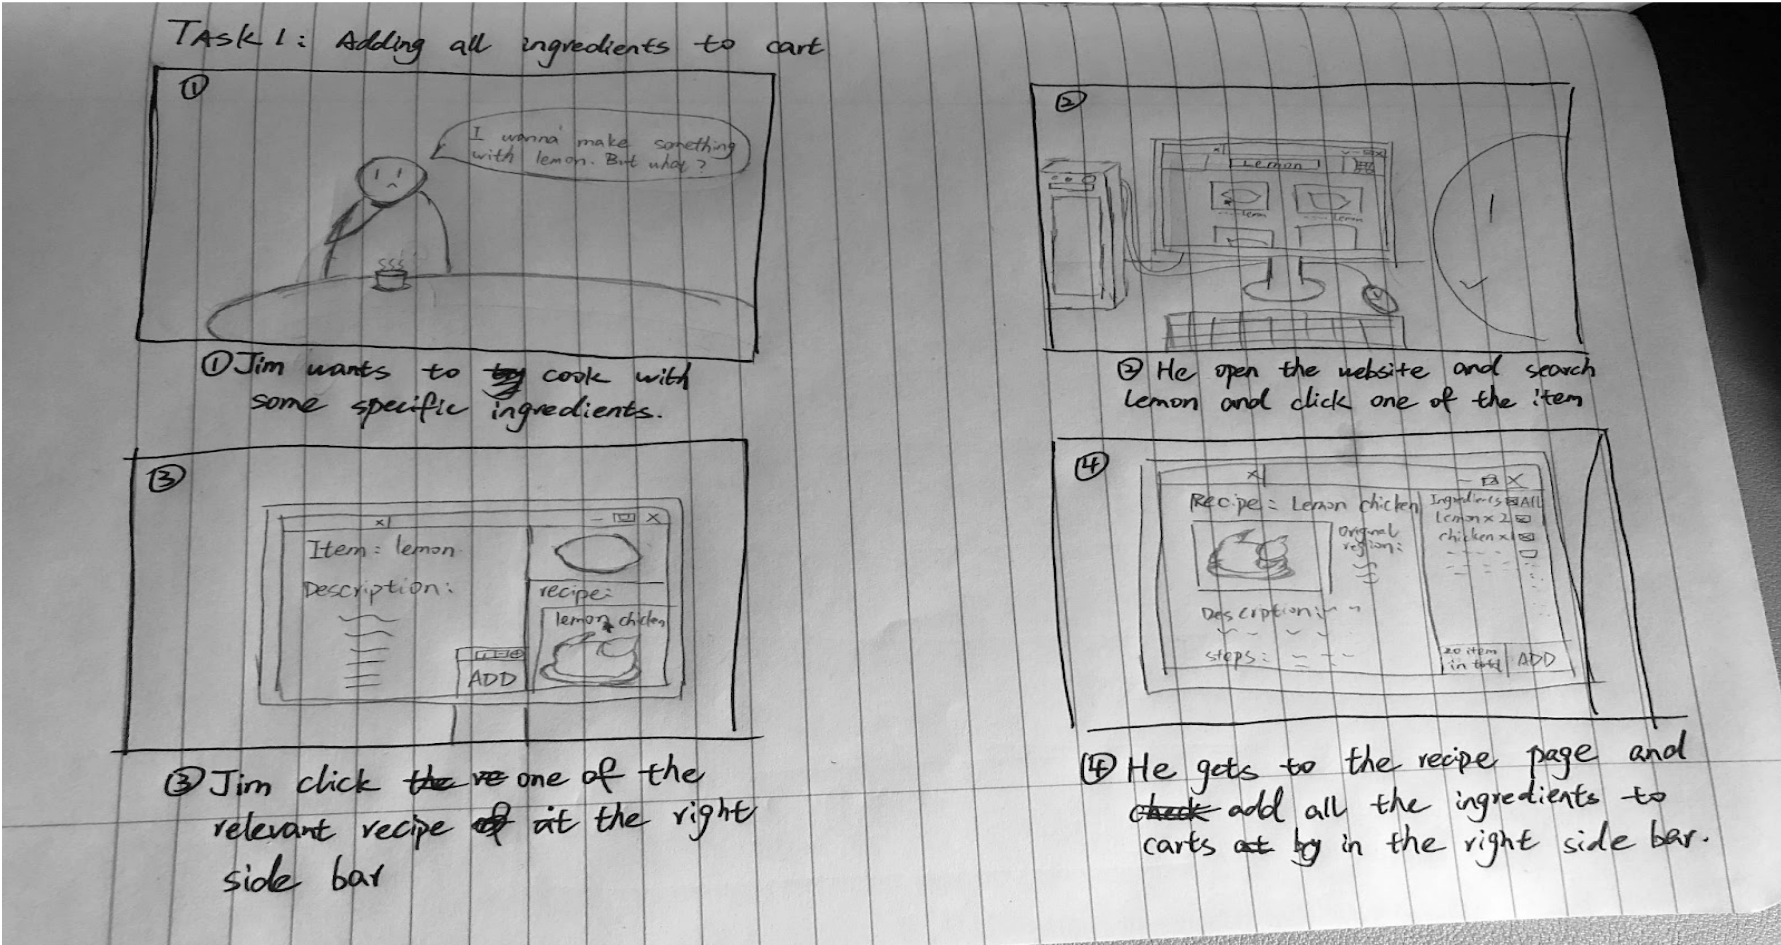 TASK 1: Adding all ingredients to cart
①
I wanna make something
with lemon. But what?
① Jim wants to cook with
some specific ingredients.
②
Lemon
lemon
② He open the website and search
lemon and click one of the item
③
Item: lemon
Description:
ADD
recipe:
lemon chicken
③ Jim click one of the
relevant recipe at the right
side bar
④
Recipe: Lemon chicken
Original
region:
Description:
steps:
Ingredients All
lemon x 2
chicken x1
20 item
in total
ADD
④ He gets to the recipe page and
add all the ingredients to
carts in the right side bar.